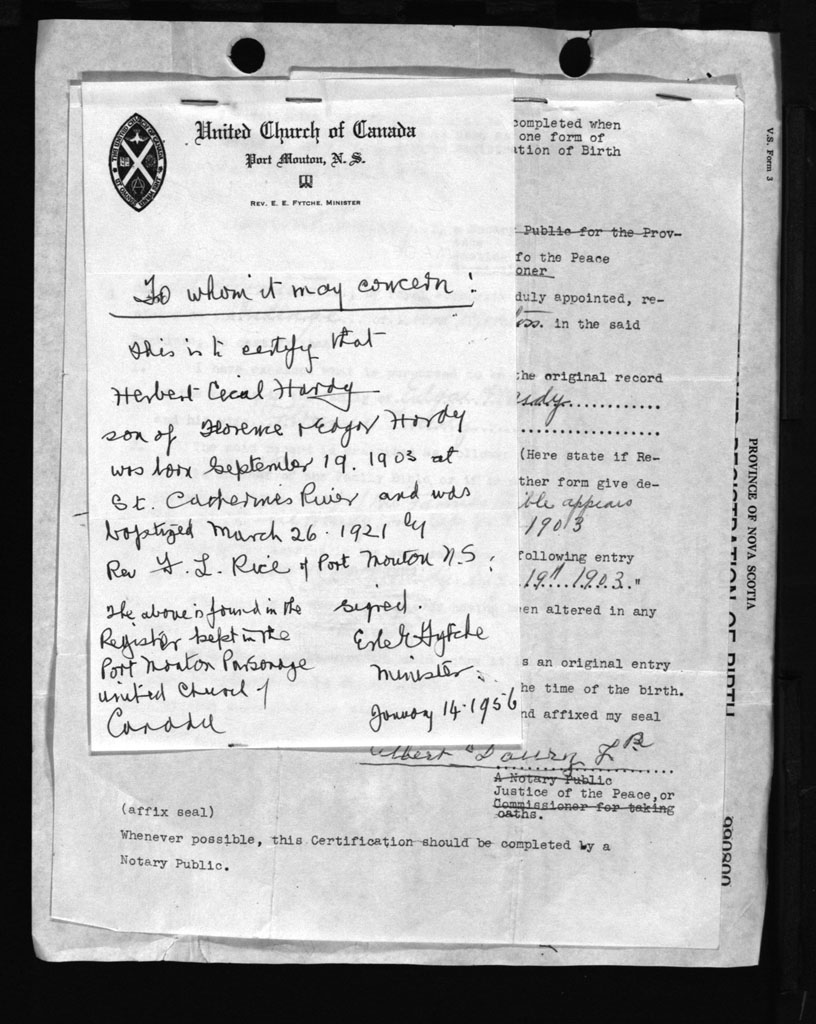 United Church of Canada
Port Mouton, N. S.
REV. E. E. FYTCHE, MINISTER
To whom it may concern:
This is to certify that
Herbert Cecal Hardy
son of Florence & Edgar Hardy
was born September 19. 1903 at
St. Catherines River and was
baptized March 26. 1921 by
Rev. L. Rice of Port Mouton N.S.
The above is found in the
Register kept in the
Port Mouton Parsonage
United Church of
Canada
Signed.
Erle E Fytche
Minister.
January 14. 1956
completed when
one form of
tion of Birth
Public for the Prov-
fo the Peace
oner
duly appointed, re-
in the said
he original record
Hardy
(Here state if Re-
ther form give de-
ible appears
1903
following entry
19th 1903."
en altered in any
s an original entry
he time of the birth.
nd affixed my seal
Albert
A Notary Public
Justice of the Peace, or
Commissioner for taking
oaths.
(affix seal)
Whenever possible, this Certification should be completed by a
Notary Public.
V.S. Form 3
PROVINCE OF NOVA SCOTIA
REGISTRATION OF BIRTH